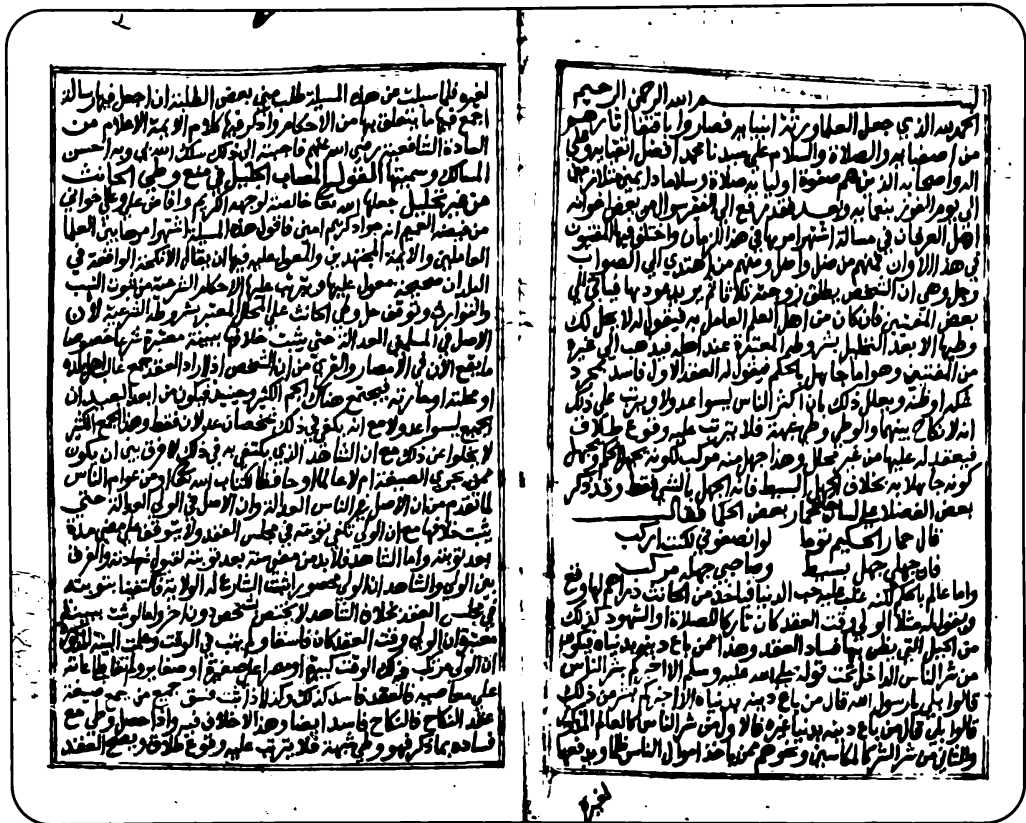 بسم الله الرحمن الرحيم
الحمد لله الذي جعل العلما ورثة انبيايه فصاروا باقتفا اثارهم
من اصفيايه والصلاة والسلام علي سيدنا محمد افضل انبيايه وعلي
اله واصحابه الذين هم صفوة اوليايه صلاة وسلاما دايمين متلازمين
الي يوم الفوز بنعمايه وبعد فقد رفع الي الفقير سوال من بعض اخوانه
اهل العرفان في مسالة اشتهر امرها في هذا الزمان واختلف فيها المفتيون
في هذا الاوان فمنهم من ضل واضل ومنهم من اهتدي الي الصواب
وجل وهي ان الشخص يطلق زوجته ثلاثا ثم يريد عودها فياتي الي
بعض المفتيين فان كان من اهل العلم العامل به فيقول له لا يحل لك
وطيها الا بعد التحليل بشروطه المعتبرة عند اهله فيذهب الي غيره
من المفتيين وهو اما جاهل بالحكم فيقول له العقد الاول فاسد بمجرد
شكه او ظنه ويعلل ذلك بان اكثر الناس ليسوا عدولا ويرتب علي ذلك
انه لا نكاح بينهما والوطي وطي شبهة فلا يترتب عليه وقوع طلاق
فيعقد له عليها من غير محلل وهذا جهل منه مركب لكونه يجهل الحكم ويجهل
كونه جاهلا به بخلاف الجهل البسيط فانه الجهل بالشي فقط وقد ذكر
بعض الفضلا علي لسان حمار بعض الحكما فقال
قال حمار الحكيم توما لو انصفوني لكنت اركب
فان جهلي جهل بسيط وصاحبي جهله مركب
واما عالم بالحكم لكنه غلب عليه حب الدنيا فياخذ من الحانث دراهم لها وقع
ويقول له مثلا الولي وقت العقد كان تاركا للصلاة او الشهود كذلك
من الحيل التي يظن بها فساد العقد وهذا ممن باع دينه بدنياه فيكون
من شر الناس الداخل تحت قوله صلي الله عليه وسلم الا اخبركم بشر الناس
قالوا بلي يا رسول الله قال من باع دينه بدنياه الا اخبركم بشر من ذلك
قالوا بلي قال من باع دينه بدنيا غيره فالاول من شر الناس كالعالم المذكور
والثاني من شر الشر كالمكاسين ونحوهم ممن ياخذ اموال الناس ظلما ويدفعها
لغيره
لغيره فلما سيلت عن هذه المسيلة طلب مني بعض الطلبة ان اجعل فيها رسالة
اجمع فيها ما يتعلق بها من الاحكام واذكر فيها كلام الايمة الاعلام من
السادة الشافعية رضي الله عنهم فاجبته الي ذلك سالك الله بي وبه احسن
المسالك وسميتها القول المصاب الجليل في منع وطي الحانث
من غير تحليل جعلها الله تعالي خالصة لوجهه الكريم وافاض علي وعلي اخواني
من فيضه العميم انه جواد كريم امين فاقول هذه المسيلة اشتهر امرها بين العلما
العاملين والايمة المجتهدين والمعول عليه فيها ان يقال الانكحة الواقعة في
البلدان صحيحة معول عليها ويترتب عليها الاحكام الشرعية من ثبوت النسب
والتوارث وتوقف حل وطي الحانث علي المحلل المعتبر بشروطه الشرعية لان
الاصل في المسلمين العدالة حتي يثبت خلافها ببينة معتبرة شرعا خصوصا
ما يقع الان في الامصار والقري من ان الشخص اذا اراد العقد جمع غالب اهل بلده
او محلته او حارته فيجتمع هناك الجم الكثير وحينيذ فيكون من ابعد البعيد ان
الجميع ليسوا عدولا مع انه يكفي في ذلك شخصان عدلان فقط وهذا الجمع الكثير
لا يخلوا عن ذلك مع ان الشاهد الذي يكتفي به في ذلك لا فرق بين ان يكون
ممن يحري الصيغة ام لا عالما او حافظا لكتاب الله تعالي او من عوام الناس
لما تقدم من ان الاصل في الناس العدالة وان الاصل في الولي العدالة حتي
يثبت خلافها مع ان الولي تكفي توبته في مجلس العقد ولا يتوقف علي مضي مدة
بعد توبته واما الشاهد فلا بد من مضي سنة بعد توبته لقبول شهادته والفرق
بين الولي والشاهد ان الولي محصور اثبت الشارع له الولاية فاكتفينا بتوبته
في مجلس العقد بخلاف الشاهد لا يختص بشخص دون اخر ولو ثبت ببينة
ان الولي وقت العقد كان فاسقا ولم يتب في الوقت وعلمت البينة
ان الولي مرتكب في ذلك الوقت كبيرة او مصرا علي صغيرة او صغاير ولم تغلب طاعاته
علي معاصيه فالعقد فاسد كذلك وكذا اذا ثبت فسق جميع من جمع صيغة
عقد النكاح فالنكاح فاسد ايضا وهذا الاخلاف فيه واذا حصل وطي مع
فساده بما ذكر فهو وطي شبهة فلا يترتب عليه وقوع طلاق ويصح العقد